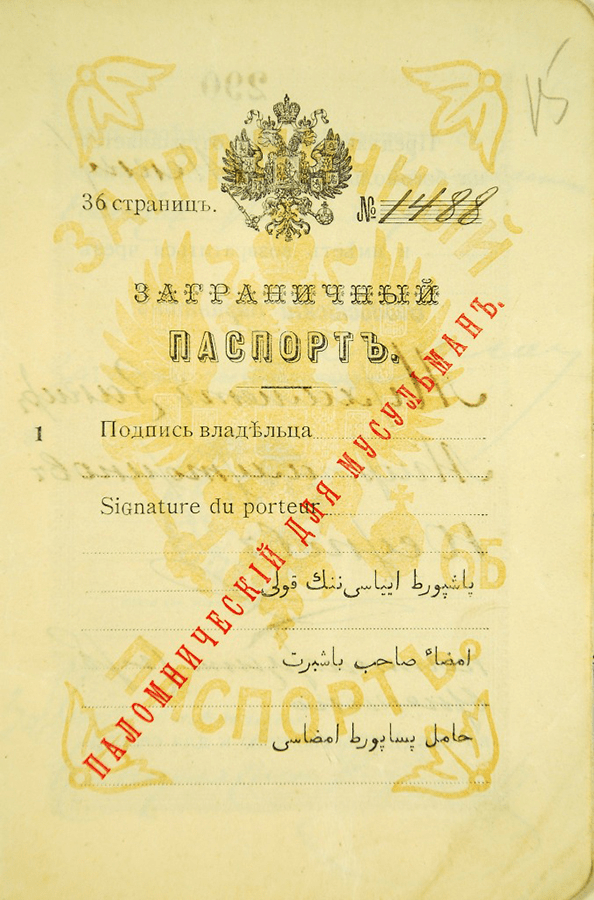 15
36 страницъ.
№ 1488
ЗАГРАНИЧНЫЙ
ПАСПОРТЪ.
ПАЛОМНИЧЕСКІЙ ДЛЯ МУСУЛЬМАНЪ.
1
Подпись владѣльца
Signature du porteur
پاشپورط اییاسی‌ننك قولی
امضاء صاحب باشبرت
حامل پساپورط امضاسی
ЗАГРАНИЧНЫЙ
ПАСПОРТЪ